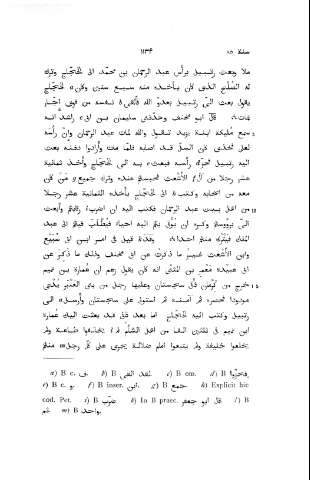 سنة ٨٥ ١١٣۴
ملا وبعث رتبيل برأس عبد الرحمان بن محمد الى الحجّاج وترك
له الصلح الذى كان يأخذه منه سبع سنين وكان الحجّاج
يقول بعث الىّ رتبيل بعدوّ الله فألقى نفسه من فوق اجّار
فمات، قال ابو مخنف وحدّثنى سليمان بن ابى راشد انه
سمع مليكة ابنة يزيد تقول والله لمات عبد الرحمان وانّ رأسه
لعلى فخذى كان السلّ قد اصابه فلمّا مات وأرادوا دفنه بعث
اليه رتبيل فحزّ رأسه فبعث به الى الحجّاج وأخذ ثمانية
عشر رجلا من آل الأشعث فحبسهم عنده وترك جميع من كان
معه من اصحابه وكتب الى الحجّاج بأخذه الثمانية عشر رجلا
من اهل بيت عبد الرحمان فكتب اليه ان اضرب رقابهم وابعث
الىّ برءوسهم وكره ان يؤتى بهم اليه احياء فيطلب فيهم الى عبد
الملك فيترك منهم احدا، وقد قيل فى امر ابن ابى سبيع
وابن الأشعث غير ما ذكرت عن ابى مخنف وذلك ما ذكر عن
ابى عبيدة معمر بن المثنّى انه كان يقول زعم ان عمارة بن تميم
خرج من كرمان فأتى سجستان وعليها رجل من بنى العنبر يدعى
مودودا فحصره ثم آمنه ثم استولى على سجستان وارسل الى
رتبيل وكتب اليه الحجّاج اما بعد فانّى قد بعثت اليك عمارة
ابن تميم فى ثلثين الفا من اهل الشأم لم يخالفوا طاعة ولم
يخلعوا خليفة ولم يتبعوا امام ضلالة يجرى على كلّ رجل منهم
a) B c. ف. b) B
c) B om. d) B
e) B c. و. f) B inser. ابن. g) B جميع. h) Explicit hic
cod. Pet. i) B ضرب. k) In B praec. قال ابو جعفر. l) B
m) B واحد.